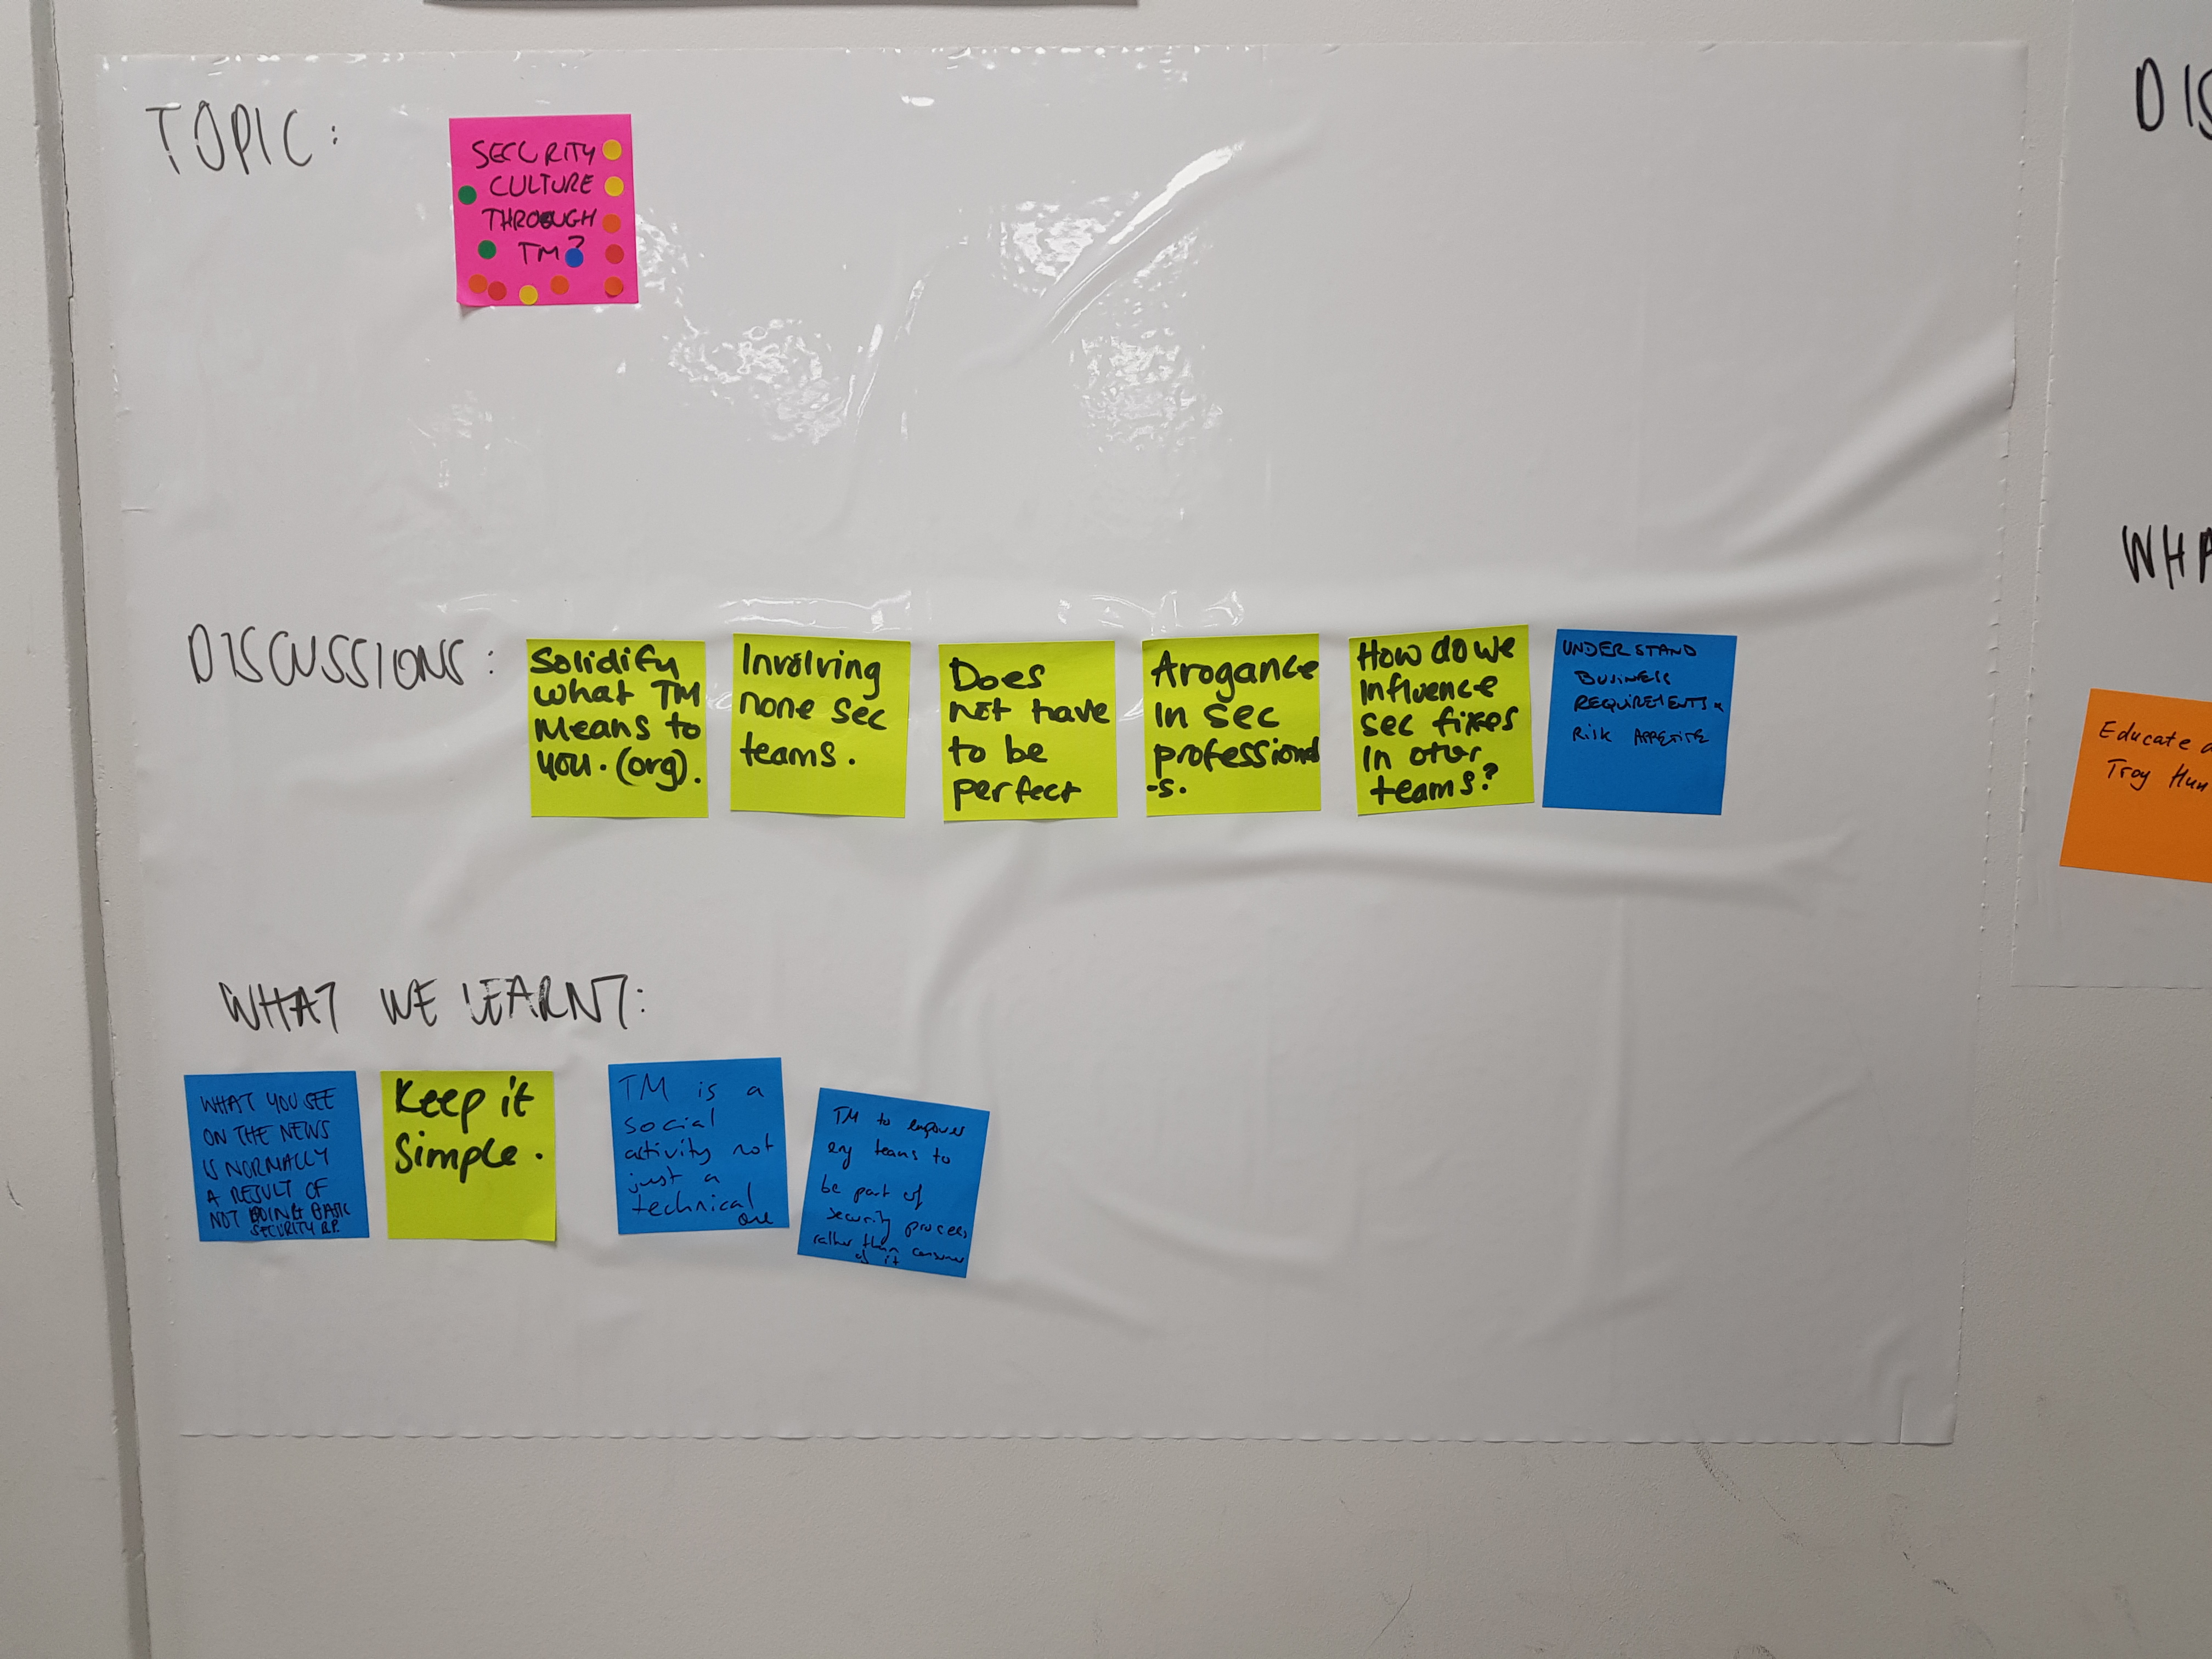 TOPIC:
SECURITY
CULTURE
THROUGH
TM?
DISCUSSIONS:
Solidify
what TM
Means to
you. (org).
Involving
none sec
teams.
Does
not have
to be
perfect
Arogance
In sec
professional
-s.
How do we
Influence
sec fixes
In other
teams?
UNDERSTAND
BUSINESS
REQUIREMENTS &
Risk APPETITE
WHAT WE LEARNT:
WHAT YOU SEE
ON THE NEWS
IS NORMALLY
A RESULT OF
NOT DOING BASIC
SECURITY B.P.
Keep it
Simple.
TM is a
social
activity not
just a
technical
one
TM to empower
eng teams to
be part of
security process
rather than consumer
of it
DIS
WHA
Educate
Troy Hun